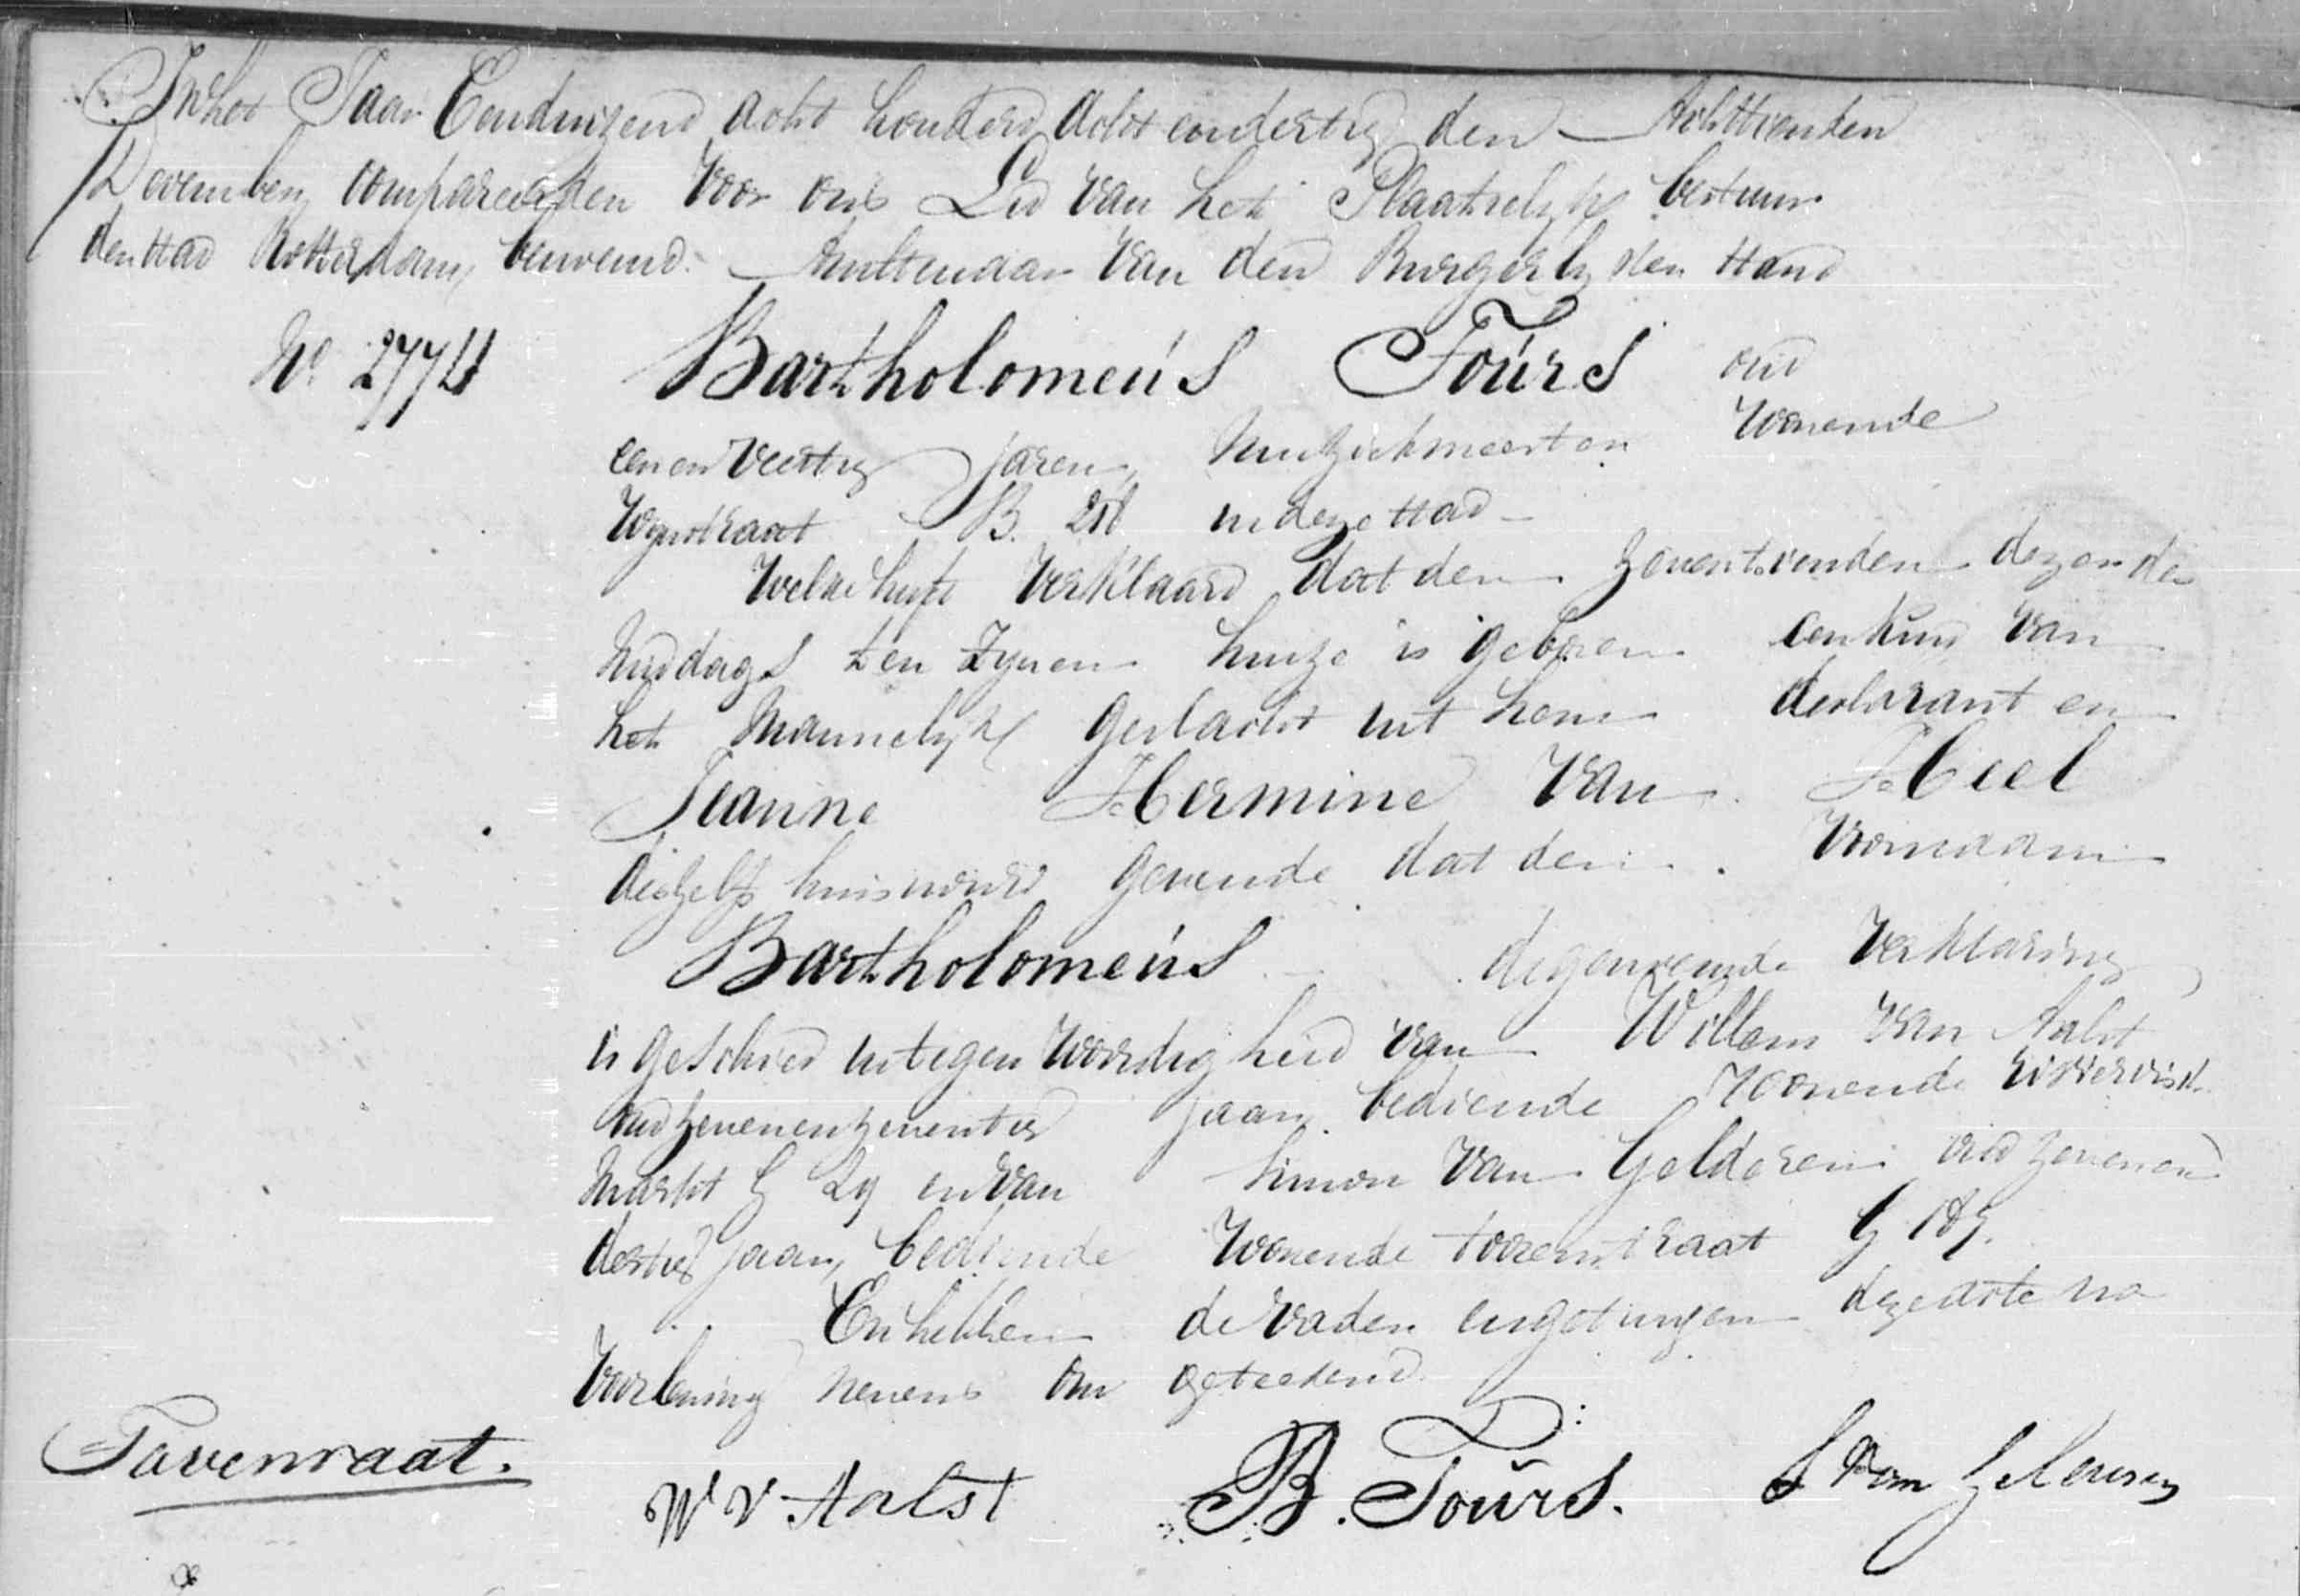 In het Jaar Eenduizend acht honderd acht en dertig den Achttienden
December, compareerden voor ons Lid van het Plaatselyk bestuur
der stad Rotterdam, benoemd Ambtenaar van den Burgerlyken stand
No. 2774 Bartholomeus Tours oud
een en veertig jaren, Muziekmeester wonende
Wynstraat B. in deze stad
Welke heeft verklaard dat den zeventienden dezer des
middags ten zynen huize is geboren een kind van
het Mannelyk geslacht uit hem declarant en
Jeanne Hermine van Heel
deszelfs huisvrouw gevende dat den Voornaam
Bartholomeus degemelde verklaring
is geschied in tegenwoordigheid van Willem van Aalst
oud zevenenzeventig jaar, bediende Wonende Riviervisch
markt G 29 en van Simon van Gelderen oud zevenen
dertig jaar, bediende Wonende torenstraat G
En hebben de vader en getuigen deze acte na
Voorlezing nevens ons geteekend
Tavenraat.
W V Aalst B. Tours. S van Gelderen